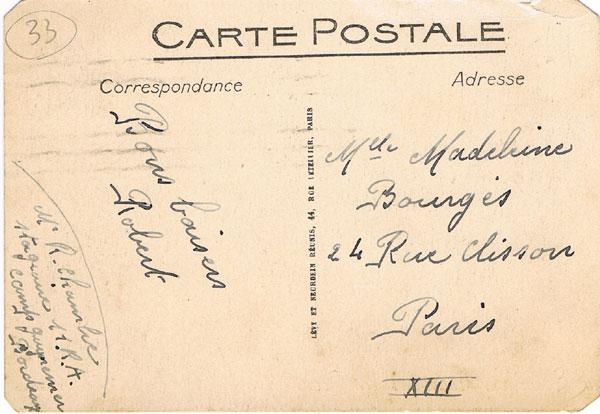 33
CARTE POSTALE
Correspondance
Adresse
Bons baisers
Robert
Mr R. Chamblie
Stagiaire 11 R.A.
camp guynemer
Bordeaux
LÉVY ET NEURDEIN RÉUNIS, 44, RUE LETELLIER, PARIS
Mlle Madeleine
Bourgés
24 Rue Clisson
Paris
XIII